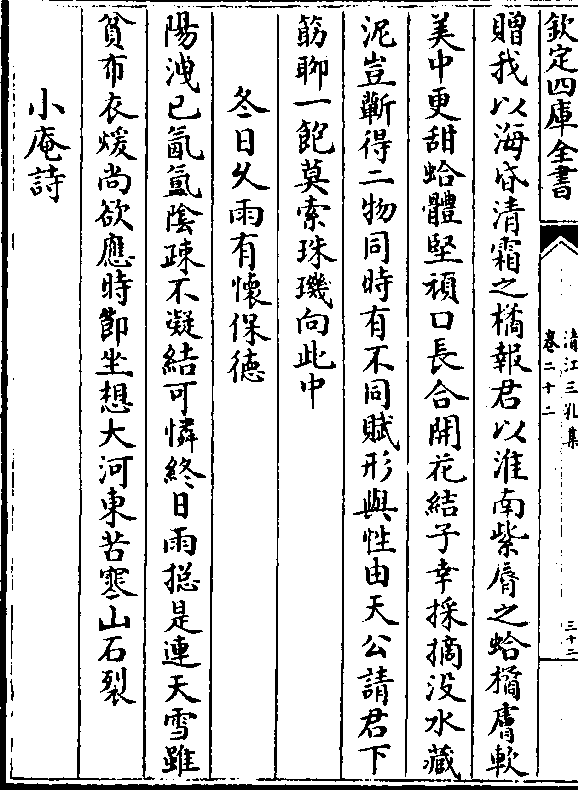 欽定四庫全書
清江三孔集
卷二十二
三十二
贈我以海沂清霜之橘報君以淮南紫脣之蛤橘膚軟
美中更甜蛤體堅頑口長合開花結子幸採摘沒水藏
泥豈蘄得二物同時有不同賦形與性由天公請君下
筯聊一飽莫索珠璣向此中
冬日久雨有懷保德
陽洩已氤氳陰疎不凝結可憐終日雨揔是連天雪雖
貧布衣煖尚欲應時節坐想大河東苦寒山石裂
小庵詩